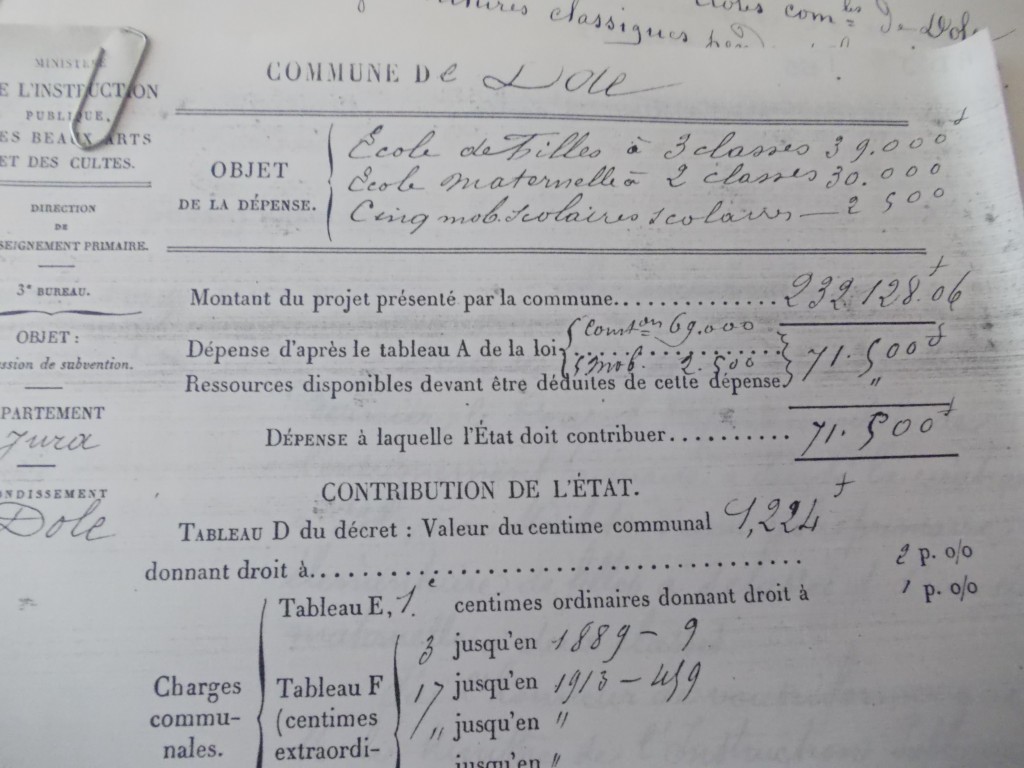 classiques
de Dole
MINISTÈRE
E L'INSTRUCTION
PUBLIQUE,
ES BEAUX ARTS
ET DES CULTES.
DIRECTION
DE
SEIGNEMENT PRIMAIRE.
3e BUREAU.
OBJET :
ssion de subvention.
PARTEMENT
Jura
NDISSEMENT
Dole
COMMUNE De Dole
OBJET
DE LA DÉPENSE.
Ecole de Filles à 3 classes 39.000 f
Ecole maternelle à 2 classes 30.000
Cinq mob. scolaires scolaires — 2 500
Montant du projet présenté par la commune.............. 232.128.06
Conston 69.000
Dépense d'après le tableau A de la loi
Mob. 2.500
71.500 f
Ressources disponibles devant être déduites de cette dépense. "
DÉPENSE à laquelle l'État doit contribuer.......... 71.500 f
CONTRIBUTION DE L'ÉTAT.
TABLEAU D du décret : Valeur du centime communal 1,224 f
donnant droit à........................................ 2 p. o/o
Tableau E, 1e centimes ordinaires donnant droit à 1 p. o/o
Charges
commu-
nales.
Tableau F
(centimes
extraordi-
3 jusqu'en 1889 - 9
17 jusqu'en 1913 - 459
" jusqu'en "
jusqu'en "